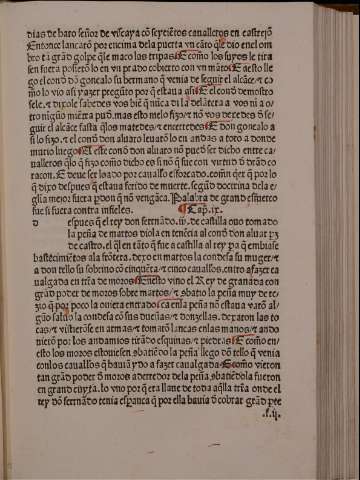 dias de haro señor de viscaya cõ seyscietos cavalleros en castrejõ
Entonce lançarõ por encima dela puerta vn cãto q̃le dio enel om
bro tã grãd golpe q̃le maco las tripas E como los suyos le tira
sen fuera posierõ lo en vn prado cobierto con vn mãto E aesto lle
go el cond dõ gonçalo su hermano q̃ venia de seguir el alcãce & co
mo lo vio asi yazer pregũto por q̃ estava asi E el cond demosto
sele & dixole sabedes vos biẽ q̃ nũca di la delãtera a vos ni a o
tro nigũo miẽtra pud. mas esto melo fizo & nõ vos dexedes d̃ se
guir el alcãce fasta q̃los matedes & encerredes E don gonçalo a
si lo fizo. & el cond dõn aluaro leuarõ lo en andas a toro a donde
murio luego E este cond dõn aluaro nõ pued ser dicho entre ca
ualleros q̃lo q̃ fizo comо dicho es si nõ q̃ fue con virtud d̃ vdado co
raçon. E deue ser loado por cauallero esforcado. comm q̃er q̃ por lo
q̃ dixo despues q̃ estava ferido de muerte. segũd doctrina dela e
glia mejor fuera pdon q̃ nõ vengãca. Palabra de grand esfuerço
fue si fuera contra infieles. Cap. ix.
d espues q̃l rey don ferrnãdo. iii. de castilla ouo tomado
la peña de martos diola en tenẽcia al cond dõn aluar pz
de castro. e el q̃l en tãto q̃ fue a castilla al rey pa q̃ embiase
bastecimiẽtos ala frõtera. dexo en martos la condesa su muger &
a don tello su sobrino cõ cinquẽta & cinco cauallos. entro a fazer ca
ualgada en trã de moros E enesto vino el Rey de granada con
grãd poder de moros sobre martos / & cõbatio la peña muy de re
zio q̃ por poco la ouiera entrado ca enla peña nõ estaua varõ al
gũo salvo la condesa cõ sus dueñas / & donzellas. dexaron las to
cas / & vistierõse en armas / & tomarõ lanças enlas manos / & ando
uierõ por los andamios tirãdo esquinas / & piedras E como en
esto los moros estouiesen cõbatiẽdo la peña llego dõ tello q̃ venia
con los cauallos q̃ bauia y̾do a fazer caualgada E como vieron
tan grãd poder d̃ moros aderredor dela peña cõbatiẽdola fueron
en grand cuyta. lo vno por q̃ era llane de toda aq̃lla trã onde el
rey dõ ferrnãdo tenia esperança q̃ por ella bauia d̃ cobrar grãd pte
.f. ij.